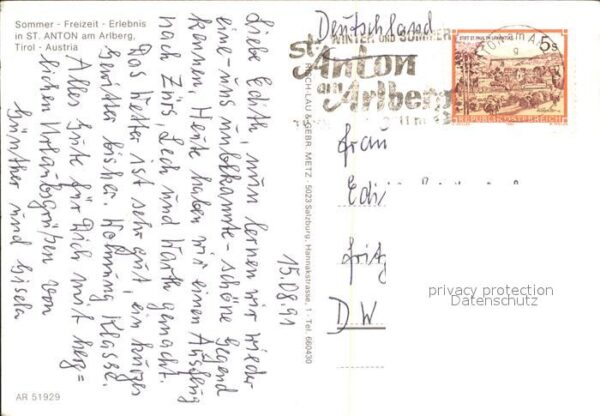 Sommer - Freizeit - Erlebnis
in ST. ANTON am Arlberg,
Tirol - Austria
15.08.91
Liebe Edith, nun lernen wir wieder
eine - uns unbekannte - schöne Gegend
kennen. Heute haben wir einen Ausflug
nach Zürs, Lech und Warth gemacht.
Das Wetter ist sehr gut, ein kurzes
Gewitter bisher. Wohnung Klasse.
Alles Gute für Dich mit herz=
lichen Urlaubsgrüßen von
Günther und Gisela
AR 51929
LAU & GEBR. METZ, 5023 Salzburg, Hannakstrasse 1 - Tel. 660430
Deutschland
WINTER UND SOMMER
St.
Anton
am
Arlberg
STIFT ST. PAUL IM LAVANTTAL
5s
REPUBLIK ÖSTERREICH
Frau
Edi
Fritz
D.W.
privacy protection
Datenschutz